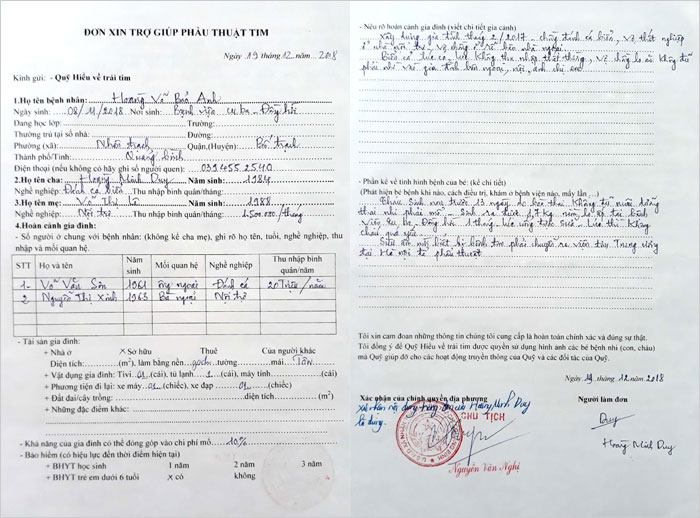 ĐƠN XIN TRỢ GIÚP PHẪU THUẬT TIM
Ngày 19 tháng 12 năm 2018
Kính gửi: - Quỹ Hiểu về trái tim
1.Họ tên bệnh nhân: Hoàng Võ Bảo Anh
Ngày sinh: 08/11/2018 Nơi sinh: Bệnh viện cu ba - Đồng hới
Đang học lớp: Trường:
Thường trú tại số nhà: Đường:
Phường (xã): Nhân trạch Quận (Huyện): Bố trạch
Thành phố/Tỉnh: Quảng bình
Điện thoại (nếu không có hãy ghi số người quen): 039455 2540
2.Họ tên cha: Hoàng Minh Duy Năm sinh: 1984
Nghề nghiệp: Đánh cá biển Thu nhập bình quân/tháng:
3.Họ tên mẹ: Võ Thị Lê Năm sinh: 1988
Nghề nghiệp: Nội trợ Thu nhập bình quân/tháng: 1.500.000/tháng
4.Hoàn cảnh gia đình:
- Số người ở chung với bệnh nhân: (không kể cha mẹ), ghi rõ họ tên, tuổi, nghề nghiệp, thu
nhập và mối quan hệ.
STT Họ và tên Năm sinh Mối quan hệ Nghề nghiệp Thu nhập bình quân/năm
1 Võ Văn Sơn 1961 ông ngoại Đánh cá 20 Triệu/năm
2 Nguyễn Thị Xinh 1963 Bà ngoại Nội trợ
- Tài sản gia đình:
+ Nhà ở x Sở hữu Thuê Của người khác
Diện tích: (m²), làm bằng nền gạch tường mái Tôn
+ Vật dụng gia đình: Tivi 01 (cái), tủ lạnh 1 (cái), máy tính (cái)
+ Phương tiện đi lại: xe máy 01 (chiếc), xe đạp 01 (chiếc)
+ Đất đai/cây trồng: diện tích (m²)
+ Những đặc điểm khác:
- Khả năng của gia đình có thể đóng góp vào chi phí mổ 10%
- Bảo hiểm (có hiệu lực đến thời điểm hiện tại)
+ BHYT học sinh 1 năm 2 năm 3 năm
+ BHYT trẻ em dưới 6 tuổi x có không
- Nêu rõ hoàn cảnh gia đình (viết chi tiết gia cảnh)
Xây dựng gia đình tháng 2/2017 - chồng đánh cá biển, vợ thất nghiệp
ở nhà nội trợ, vợ chồng ở rể bên nhà ngoại.
Phần kể về tình hình bệnh của bé: (kể chi tiết)
(Phát hiện bệnh khi nào, cách điều trị, khám ở bệnh viện nào, mấy lần ...)
Siêu âm mới biết bị bệnh tim phải chuyển ra viện tim Trung ương
tại Hà nội để phẫu thuật
Tôi xin cam đoan những thông tin chúng tôi cung cấp là hoàn toàn chính xác và đúng sự thật.
Tôi đồng ý để Quỹ Hiểu về trái tim được quyền sử dụng hình ảnh các bé bệnh nhi (con, cháu)
mà Quỹ giúp đỡ cho các hoạt động truyền thông của Quỹ và các đối tác của Quỹ.
Ngày 19 tháng 12 năm 2018
Xác nhận của chính quyền địa phương Người làm đơn
CHỦ TỊCH
Duy
Hoàng Minh Duy
Nguyễn Văn Nghị